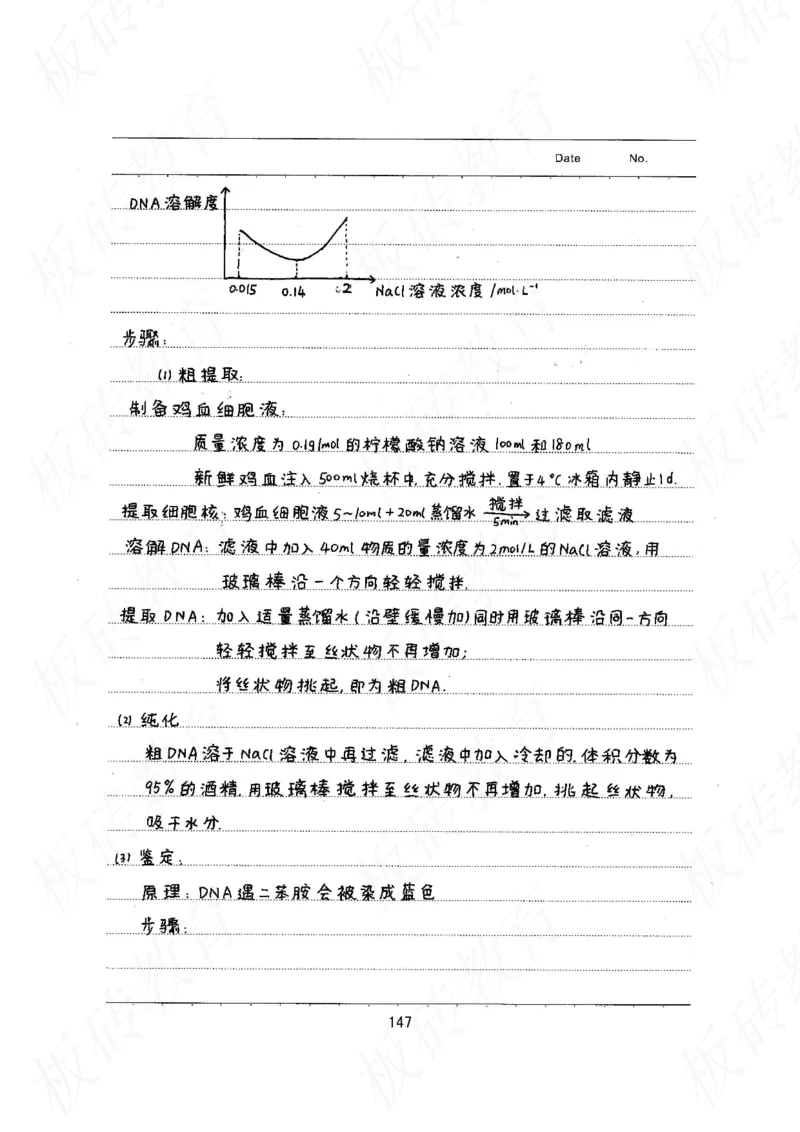 Date No.
DNA溶解度
0.015 0.14 2 NaCl溶液浓度/mol·L⁻¹
步骤:
(1) 粗提取:
制备鸡血细胞液:
质量浓度为0.1g/mol的柠檬酸钠溶液100ml和180ml
新鲜鸡血注入500ml烧杯中,充分搅拌.置于4℃冰箱内静止1d.
提取细胞核:鸡血细胞液5~10ml+20ml蒸馏水 搅拌 5min 过滤取滤液
溶解DNA:滤液中加入40ml物质的量浓度为2mol/L的NaCl溶液,用
玻璃棒沿一个方向轻轻搅拌.
提取DNA:加入适量蒸馏水(沿壁缓慢加)同时用玻璃棒沿同一方向
轻轻搅拌至丝状物不再增加;
将丝状物挑起,即为粗DNA.
(2) 纯化
粗DNA溶于NaCl溶液中再过滤,滤液中加入冷却的,体积分数为
95%的酒精,用玻璃棒搅拌至丝状物不再增加,挑起丝状物,
吸干水分.
(3) 鉴定.
原理:DNA遇二苯胺会被染成蓝色
步骤:
147
板砖教育